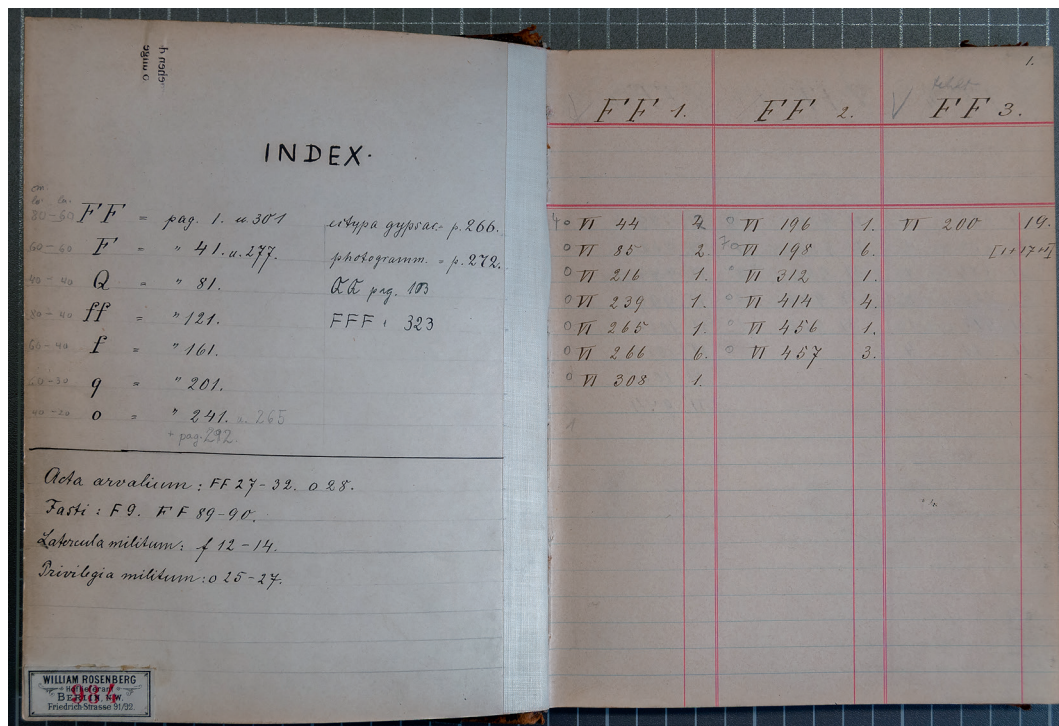 INDEX.
80-60 FF = pag. 1. u. 301
60-60 F = " 41. u. 277.
40-40 Q = " 81.
80-40 ff = " 121.
60-40 f = " 161.
60-30 q = " 201.
40-20 o = " 241. u. 265
+ pag. 292.
ectypa gypsac. = p. 266.
photogramm. = p. 272.
QQ pag. 103
FFF " 323
Acta arvalium: FF 27-32. o 28.
Fasti: F 9. FF 89-90.
Latercula militum: f 12-14.
Privilegia militum: o 25-27.
WILLIAM ROSENBERG
BERLIN, N.W.
Friedrich-Strasse 91/92.
984
1.
FF 1.
VI 44
VI 85 2.
VI 216 1.
VI 239 1.
VI 265 1.
VI 266 6.
VI 308 1.
FF 2.
VI 196 1.
VI 198 6.
VI 312 1.
VI 414 4.
VI 456 1.
VI 457 3.
fehlt
FF 3.
VI 200 19.
[1+17+1]